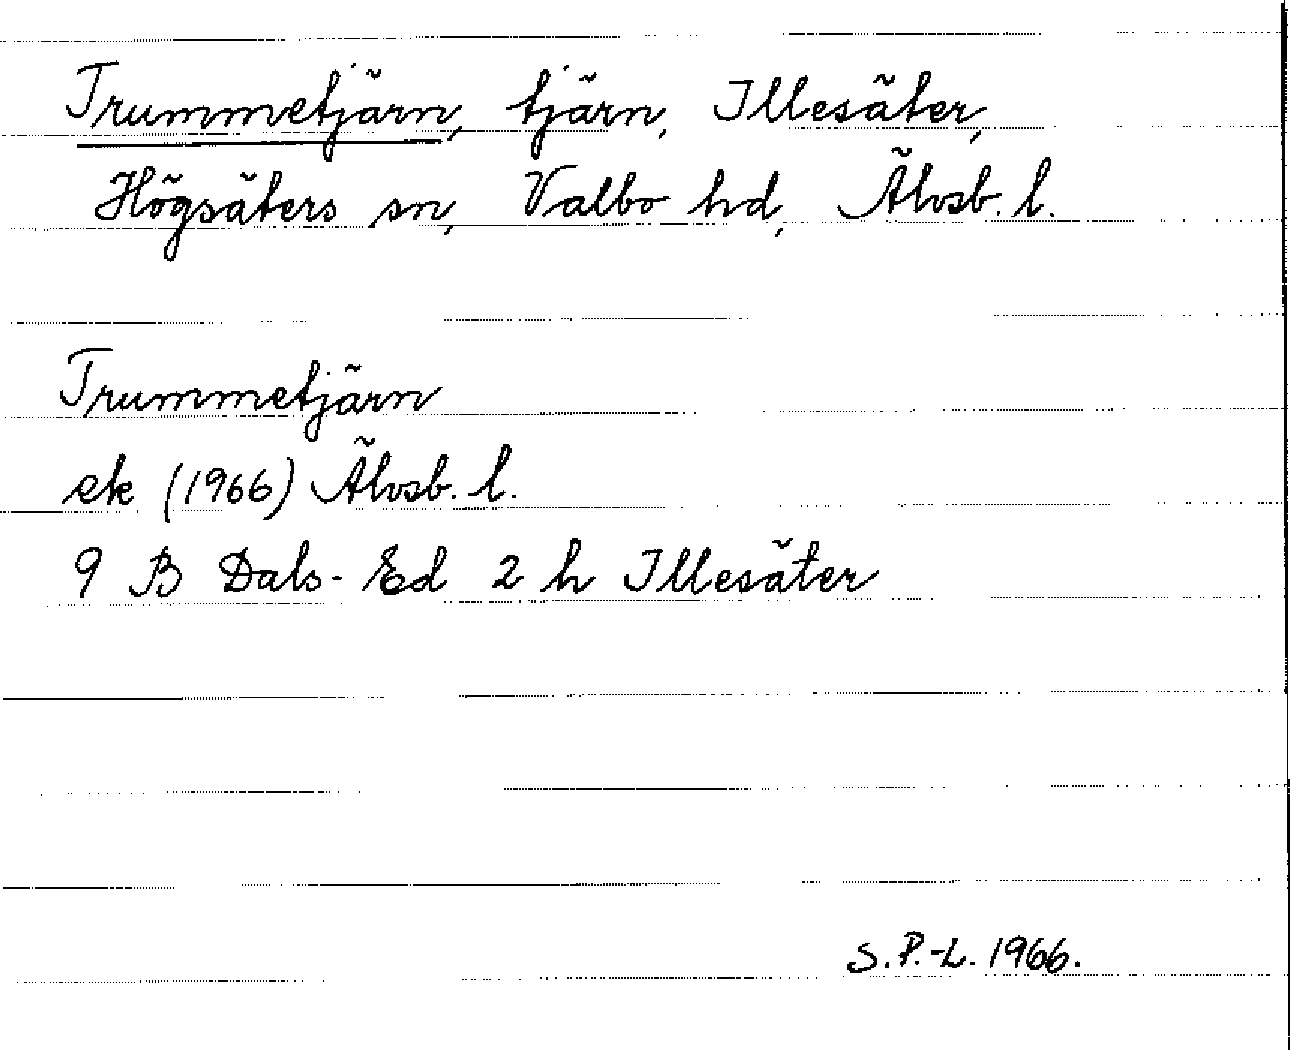 Trummetjärn, tjärn, Illesäter,
Högsäters sn, Valbo hd, Älvsb. l.
Trummetjärn
ek (1966) Älvsb. l.
9 B Dals-Ed 2 h Illesäter
S.P.-L. 1966.